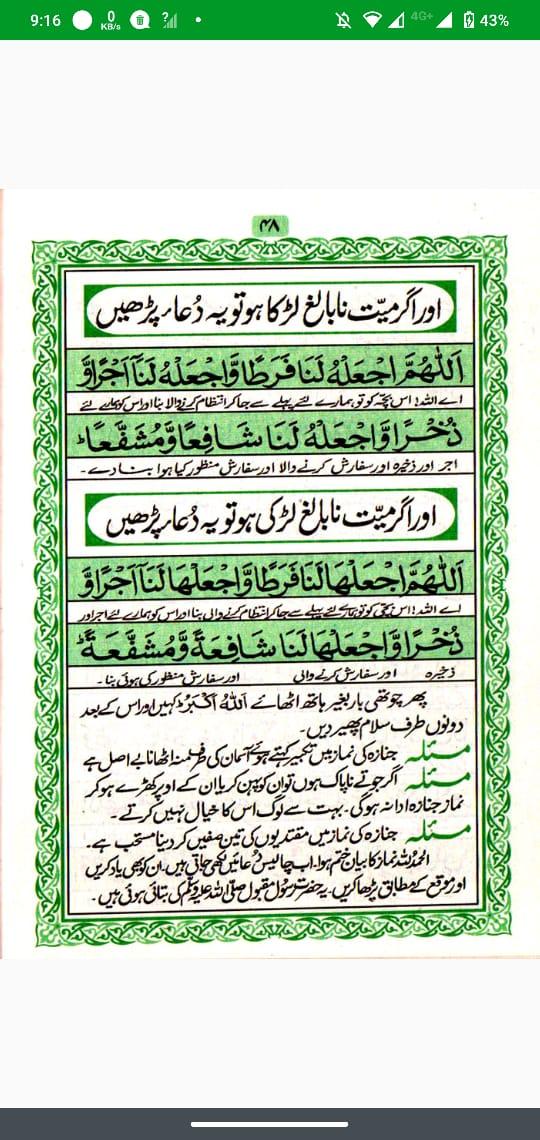 9:16
0
KB/s
?
4G+
43%
۴۸
اور اگر میّت نابالغ لڑکا ہو تو یہ دُعاء پڑھیں
اَللّٰهُمَّ اجْعَلْهُ لَنَا فَرَطًا وَّاجْعَلْهُ لَنَآ اَجْرًا وَّ
اے اللہ! اس بچّہ کو تو ہمارے لئے پہلے سے جا کر انتظام کرنے والا بنا اور اس کو ہمارے لئے
ذُخْرًا وَّاجْعَلْهُ لَنَا شَافِعًا وَّمُشَفَّعًا ؕ
اجر اور ذخیرہ اور سفارش کرنے والا اور سفارش منظور کیا ہوا بنا دے۔
اور اگر میّت نابالغ لڑکی ہو تو یہ دُعاء پڑھیں
اَللّٰهُمَّ اجْعَلْهَا لَنَا فَرَطًا وَّاجْعَلْهَا لَنَآ اَجْرًا وَّ
اے اللہ! اس بچّی کو تو ہمارے لئے پہلے سے جا کر انتظام کرنے والی بنا اور اس کو ہمارے لئے اجر اور
ذُخْرًا وَّاجْعَلْهَا لَنَا شَافِعَةً وَّمُشَفَّعَةً ؕ
ذخیرہ اور سفارش کرنے والی اور سفارش منظور کی ہوئی بنا۔
پھر چوتھی بار بغیر ہاتھ اٹھائے اَللّٰهُ اَكْبَرُ کہیں اور اس کے بعد
دونوں طرف سلام پھیر دیں۔
مسئلہ جنازہ کی نماز میں تکبیر کہتے ہوئے آسمان کی طرف منہ اٹھانا بے اصل ہے
مسئلہ اگر جوتے ناپاک ہوں تو ان کو پہن کر یا ان کے اوپر کھڑے ہو کر
نماز جنازہ ادا نہ ہوگی۔ بہت سے لوگ اس کا خیال نہیں کرتے۔
مسئلہ جنازہ کی نماز میں مقتدیوں کی تین صفیں کر دینا مستحب ہے۔
الحمد للہ نماز کا بیان ختم ہوا۔ اب چالیس دُعائیں لکھی جاتی ہیں، ان کو بھی یاد کریں
اور موقع کے مطابق پڑھا کریں۔ یہ حضرت رسول مقبول صلی اللہ علیہ وسلم کی بتائی ہوئی ہیں۔